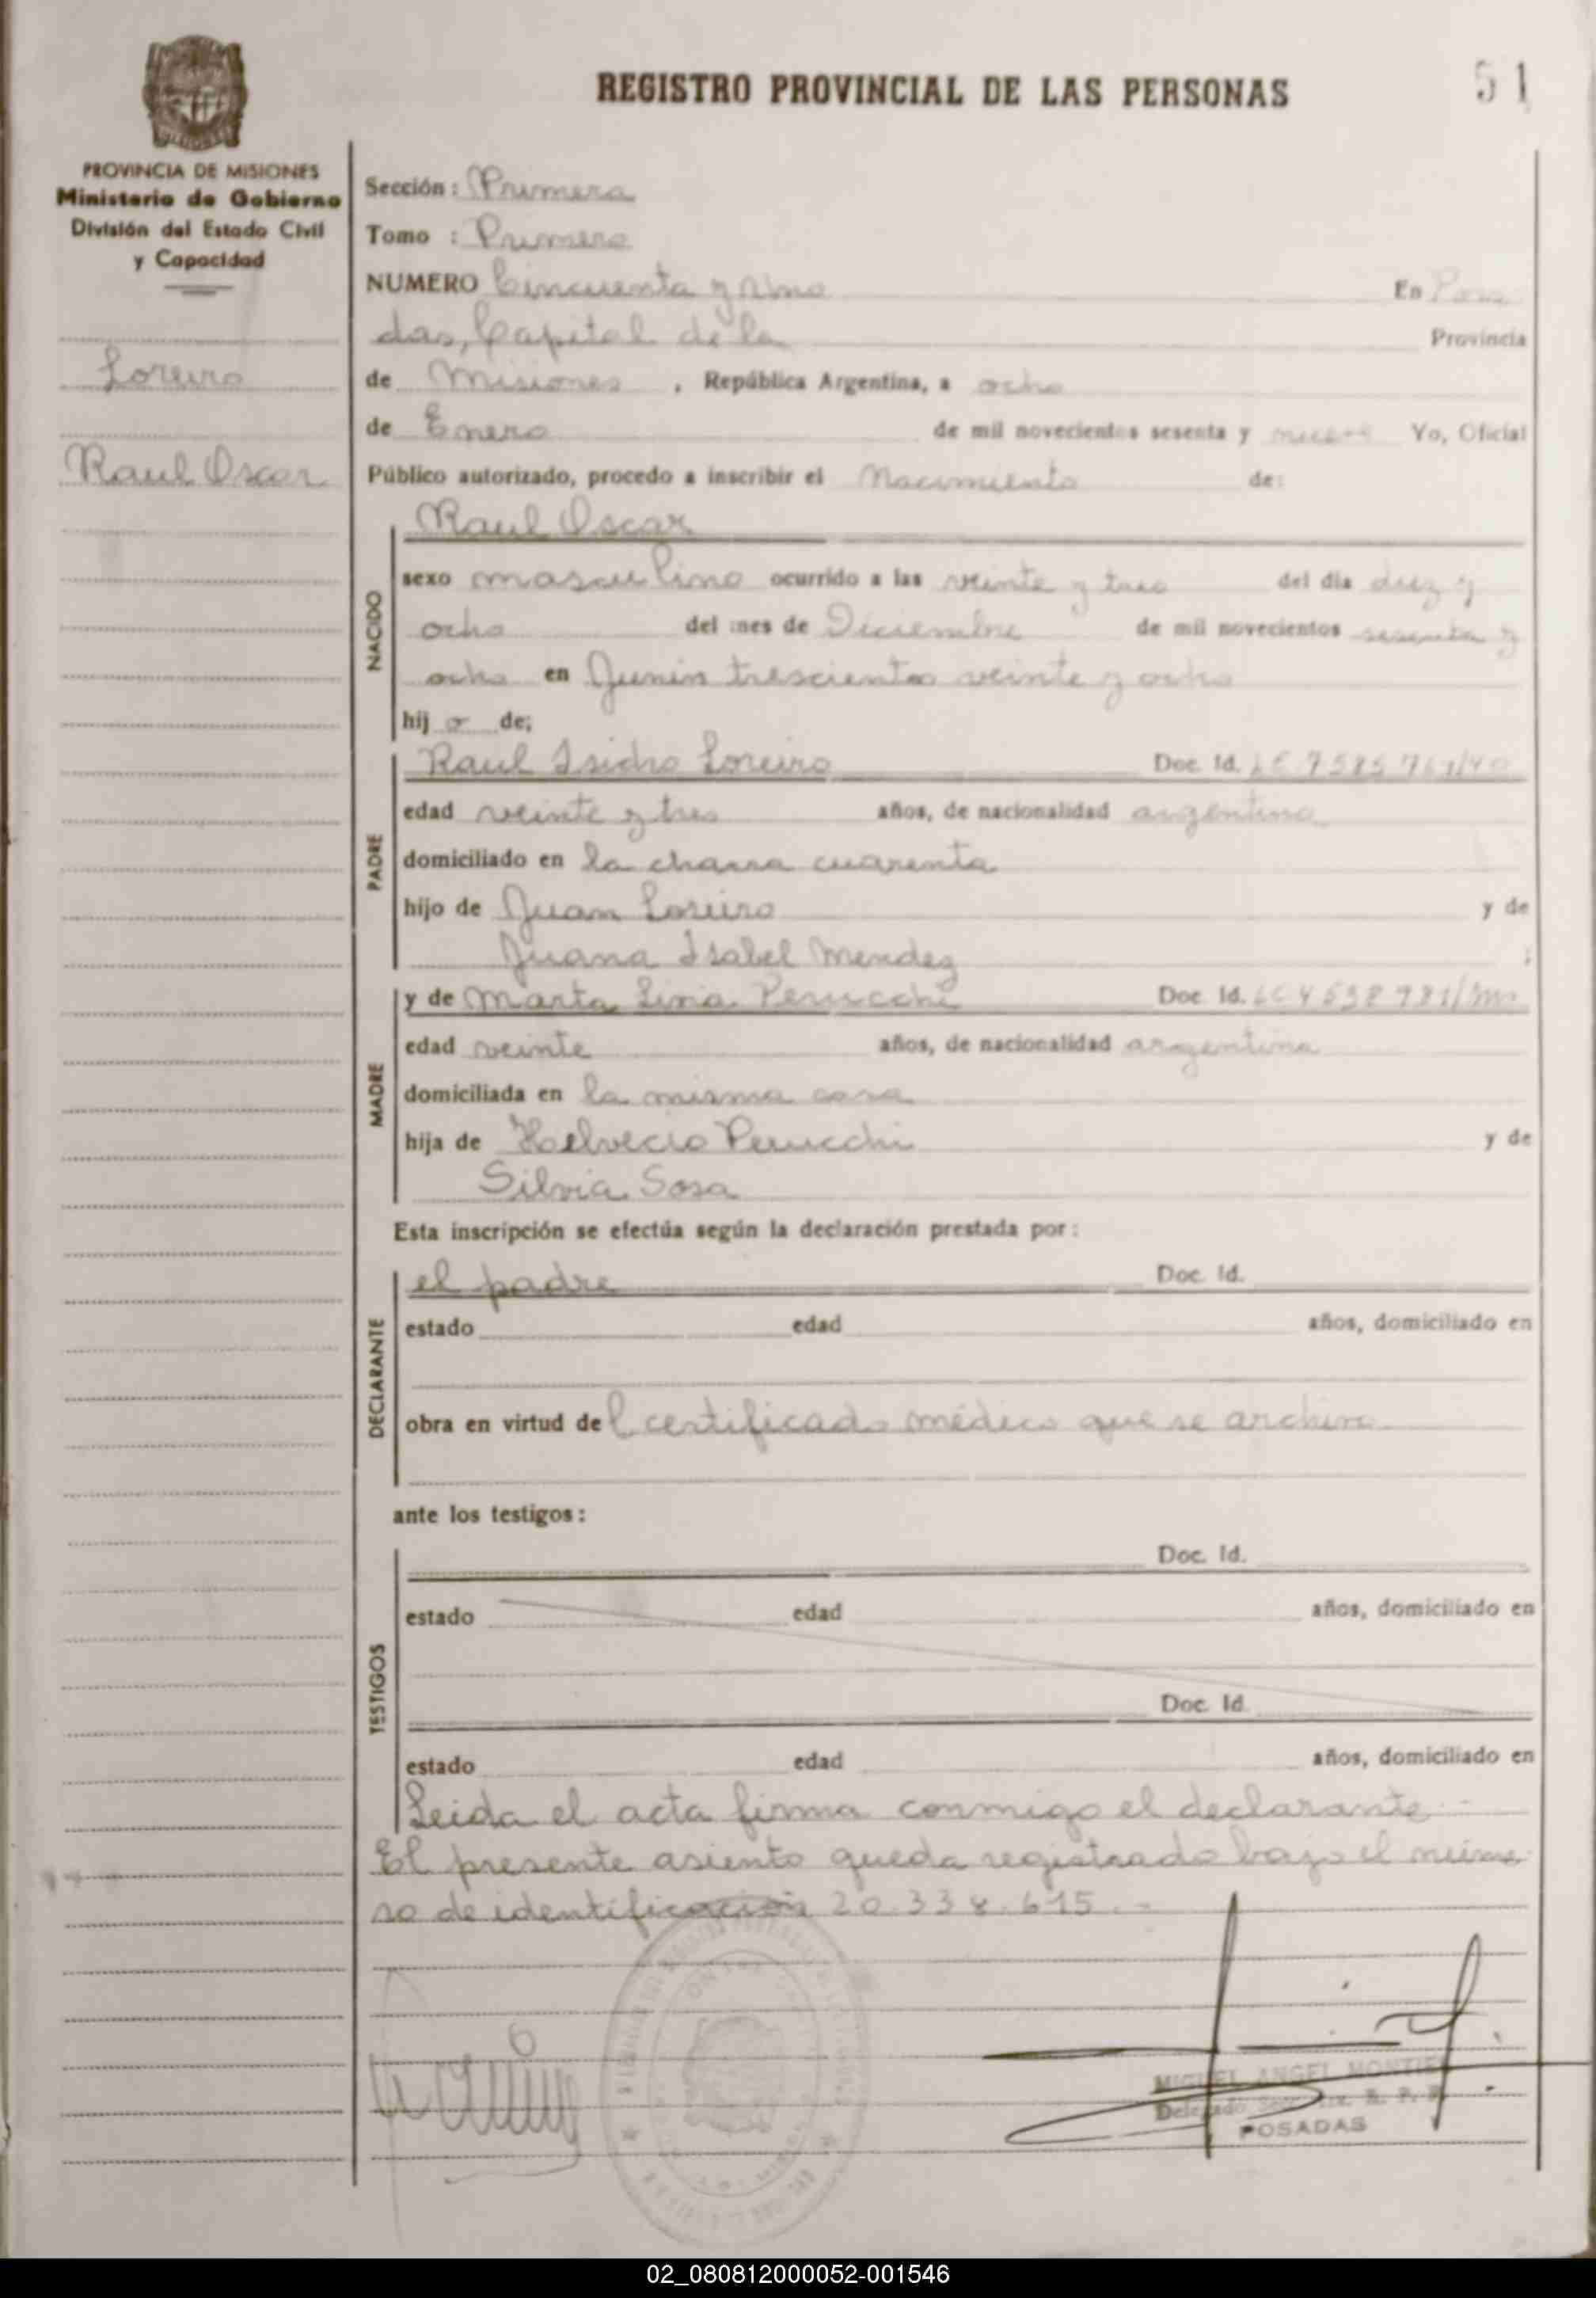 REGISTRO PROVINCIAL DE LAS PERSONAS
51
PROVINCIA DE MISIONES
Ministerio de Gobierno
División del Estado Civil
y Capacidad
Loreiro
Raul Oscar
Sección: Primera
Tomo: Primero
NUMERO Cincuenta y uno En Posa
das, Capital de la Provincia
de Misiones, República Argentina, a ocho
de Enero de mil novecientos sesenta y nueve Yo, Oficial
Público autorizado, procedo a inscribir el Nacimiento de:
NACIDO
Raul Oscar
sexo masculino ocurrido a las veinte y tres del dia diez y
ocho del mes de Diciembre de mil novecientos sesenta y
ocho en Junin trescientos veinte y ocho
hij o de;
PADRE
Raul Isidro Loreiro Doc. Id.
edad veinte y tres años, de nacionalidad argentina
domiciliado en la chacra cuarenta
hijo de Juan Loreiro y de
Juana Isabel Mendez ;
MADRE
y de Marta Perucchi Doc. Id.
edad veinte años, de nacionalidad argentina
domiciliada en la misma casa
hija de Helvecio Perucchi y de
Silvia Sosa
Esta inscripción se efectúa según la declaración prestada por:
DECLARANTE
el padre Doc. Id.
estado edad años, domiciliado en
obra en virtud de l certificado médico que se archiva
ante los testigos:
TESTIGOS
Doc. Id.
estado edad años, domiciliado en
Doc. Id.
estado edad años, domiciliado en
Leida el acta firma conmigo el declarante.-
El presente asiento queda registrado bajo el núme
ro de identificación 20.338.615.-
MIGUEL ANGEL MONTIEL
Delegado
POSADAS
02_080812000052-001546